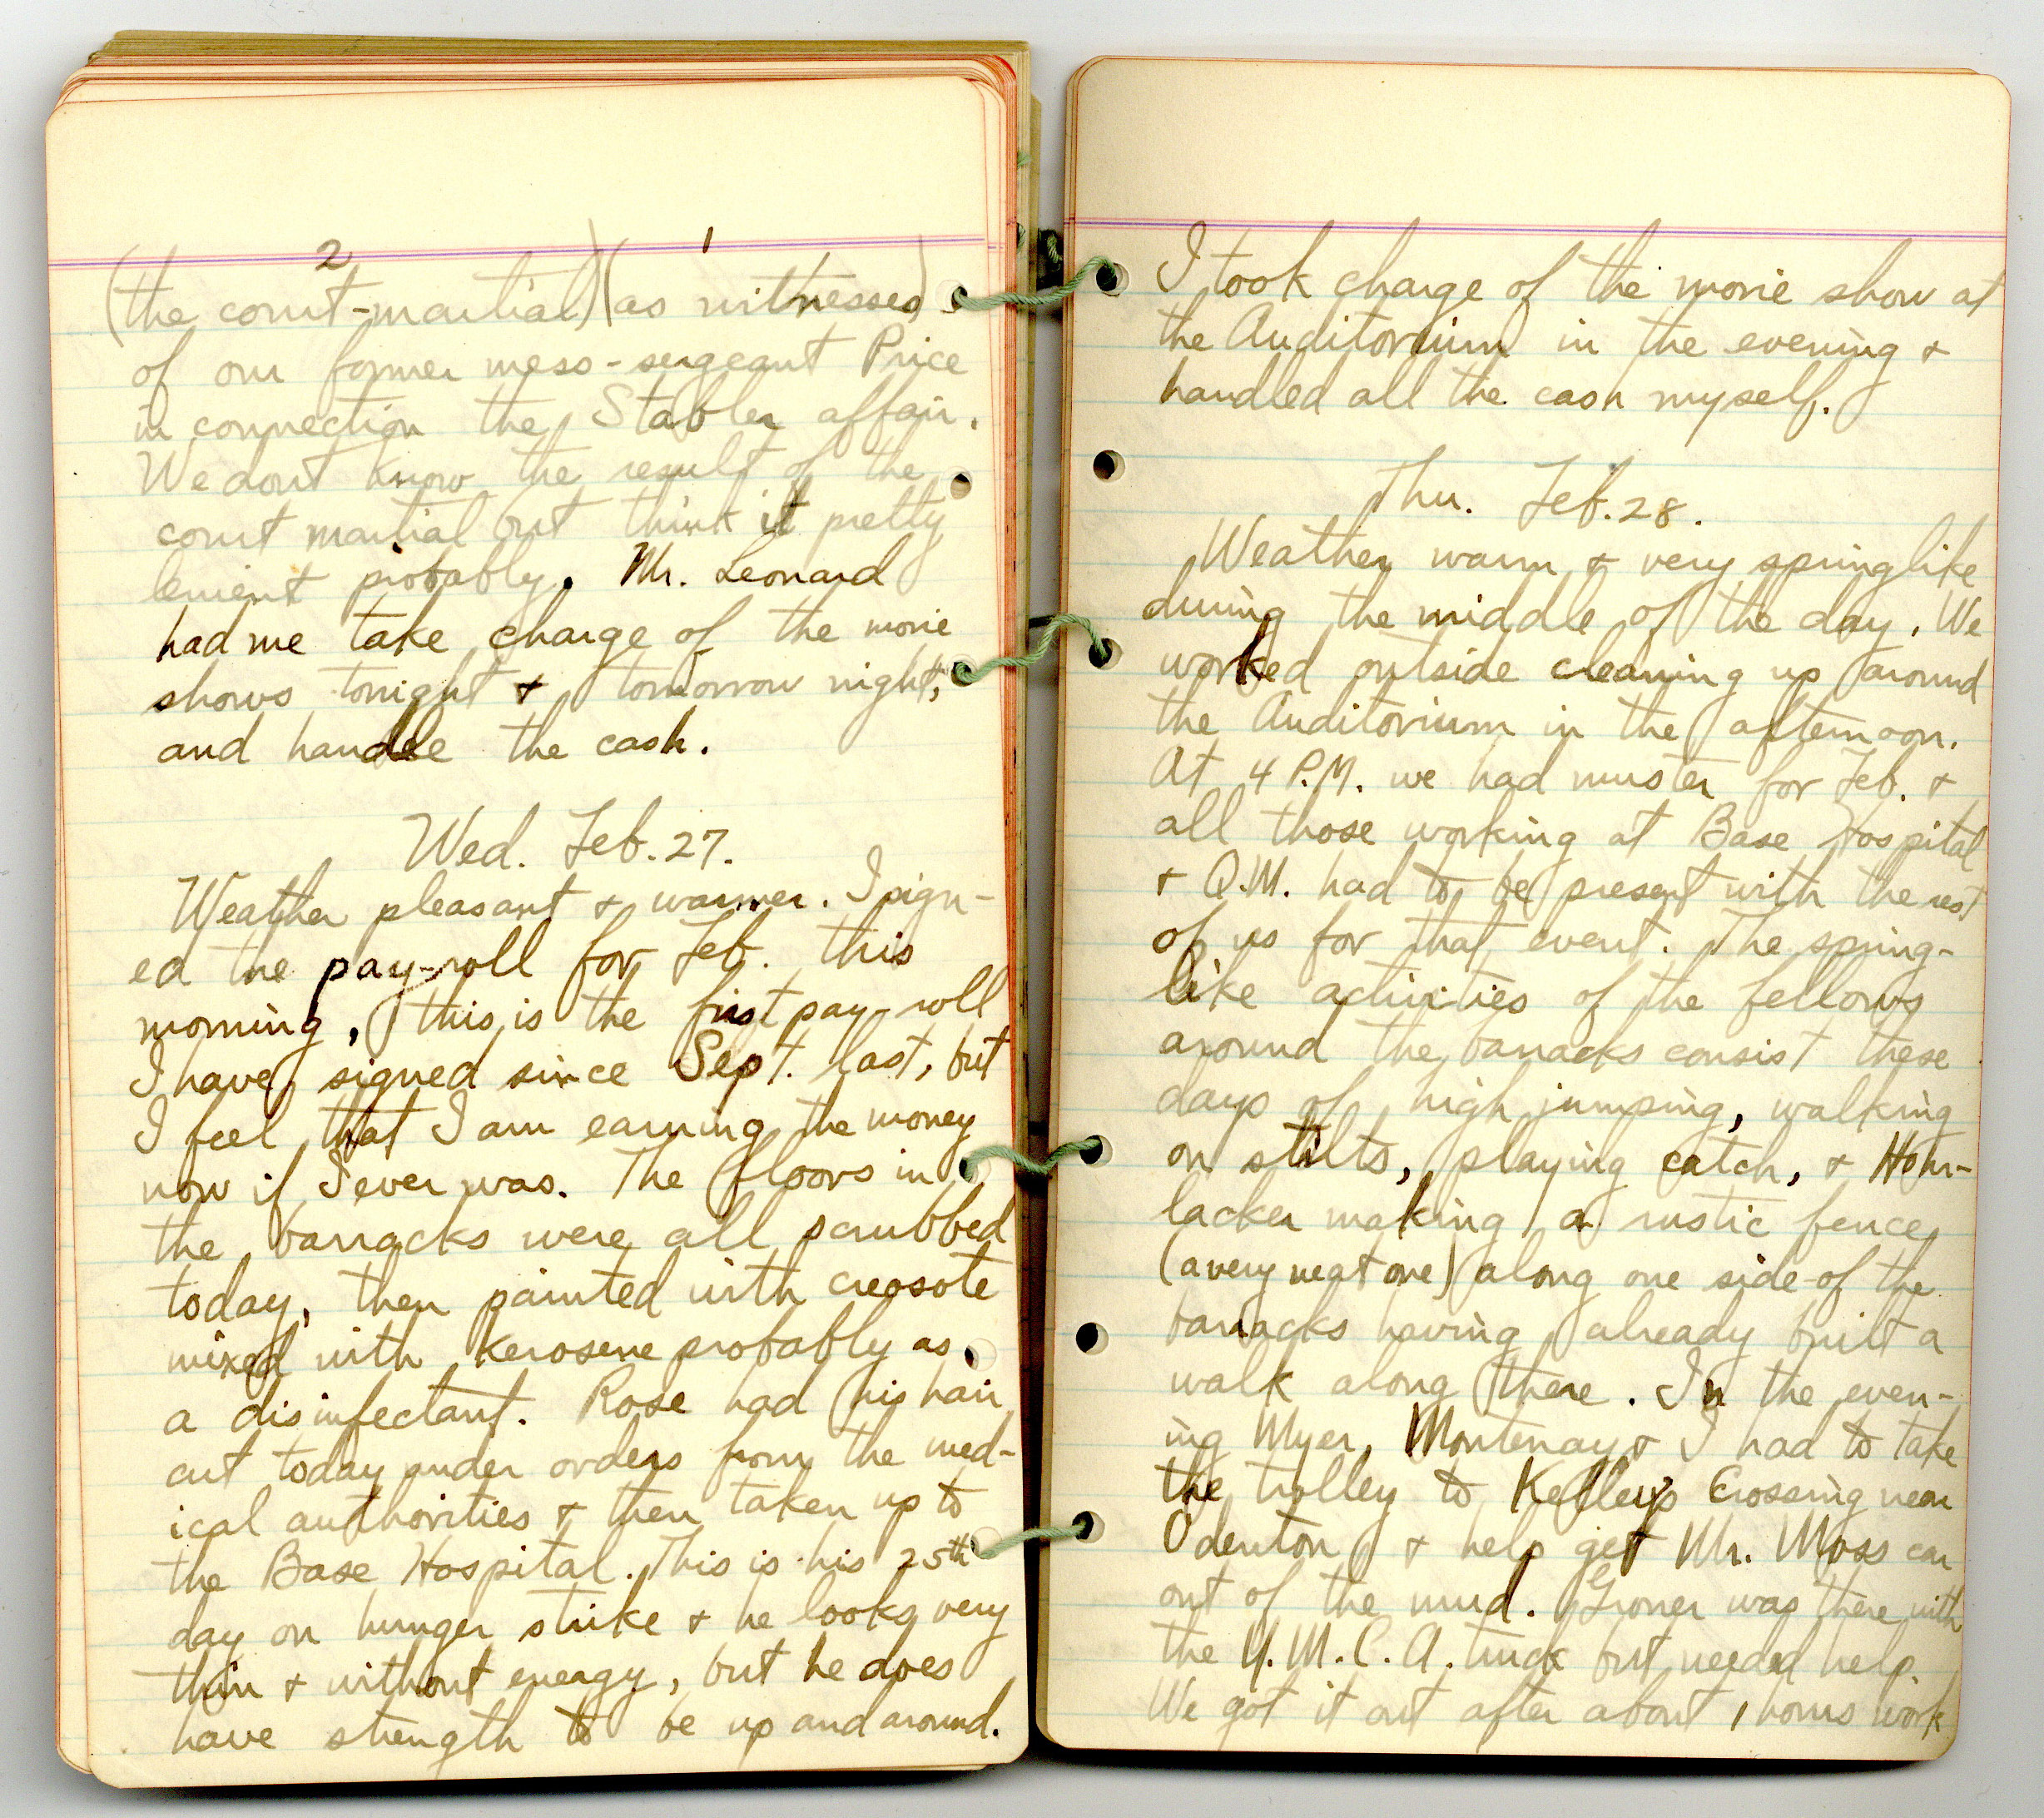 2 1
(the court-martial) (as witnesses)
of our former mess-sergeant Price
in connection the Stabler affair.
We dont know the result of the
court martial but think it pretty
lenient probably. Mr. Leonard
had me take charge of the movie
shows tonight & tomorrow night,
and handle the cash.
Wed. Feb. 27.
Weather pleasant & warmer. I sign-
ed the pay-roll for Feb. this
morning, this is the first pay-roll
I have signed since Sept. last, but
I feel that I am earning the money
now if I ever was. The floors in
the barracks were all scrubbed
today, then painted with creosote
mixed with kerosene probably as
a disinfectant. Rose had his hair
cut today under orders from the med-
ical authorities & then taken up to
the Base Hospital. This is his 25th
day on hunger strike & he looks very
thin & without energy, but he does
have strength to be up and around.
I took charge of the movie show at
the Auditorium in the evening &
handled all the cash myself.
Thu. Feb. 28.
Weather warm & very springlike
during the middle of the day. We
worked outside cleaning up around
the Auditorium in the afternoon.
At 4 P.M. we had muster for Feb. &
all those working at Base Hospital
& Q.M. had to be present with the rest
of us for that event. The spring-
like activities of the fellows
around the barracks consist these
days of high jumping, walking
on stilts, playing catch, & Hom-
lacker making a rustic fence
(a very neat one) along one side of the
barracks having already built a
walk along there. In the even-
ing Myer, Montenay & I had to take
the trolley to Kelleys Crossing near
Odenton & help get Mr. Moss car
out of the mud. Groner was there with
the Y.M.C.A. truck but needed help.
We got it out after about 1 hours work